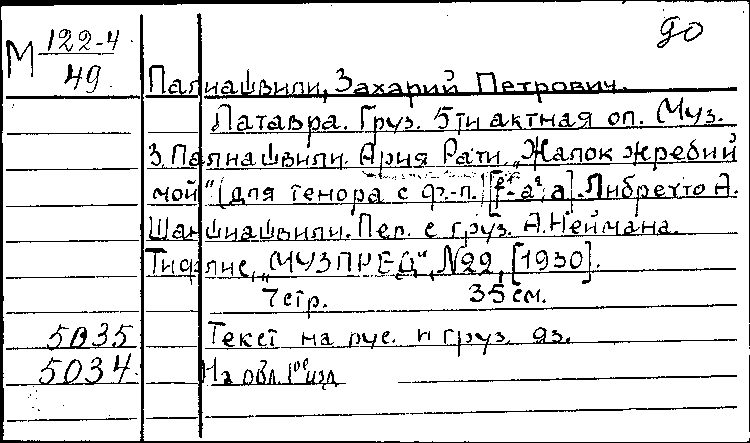 до
М 122-4
49
Палиашвили, Захарий Петрович.
Латавра. Груз. 5ти актная оп. Муз.
З. Палиашвили. Ария Рати „Жалок жребий
мой" (для тенора с ф.-п.) [f-a², a]. Либретто А.
Шаншиашвили. Пер. с груз. А. Неймана.
Тифлис, „МУЗПРЕД", №22, [1930].
7 стр. 35 см.
5035 Текст на рус. и груз. яз.
5034 На обл. 1ое изд